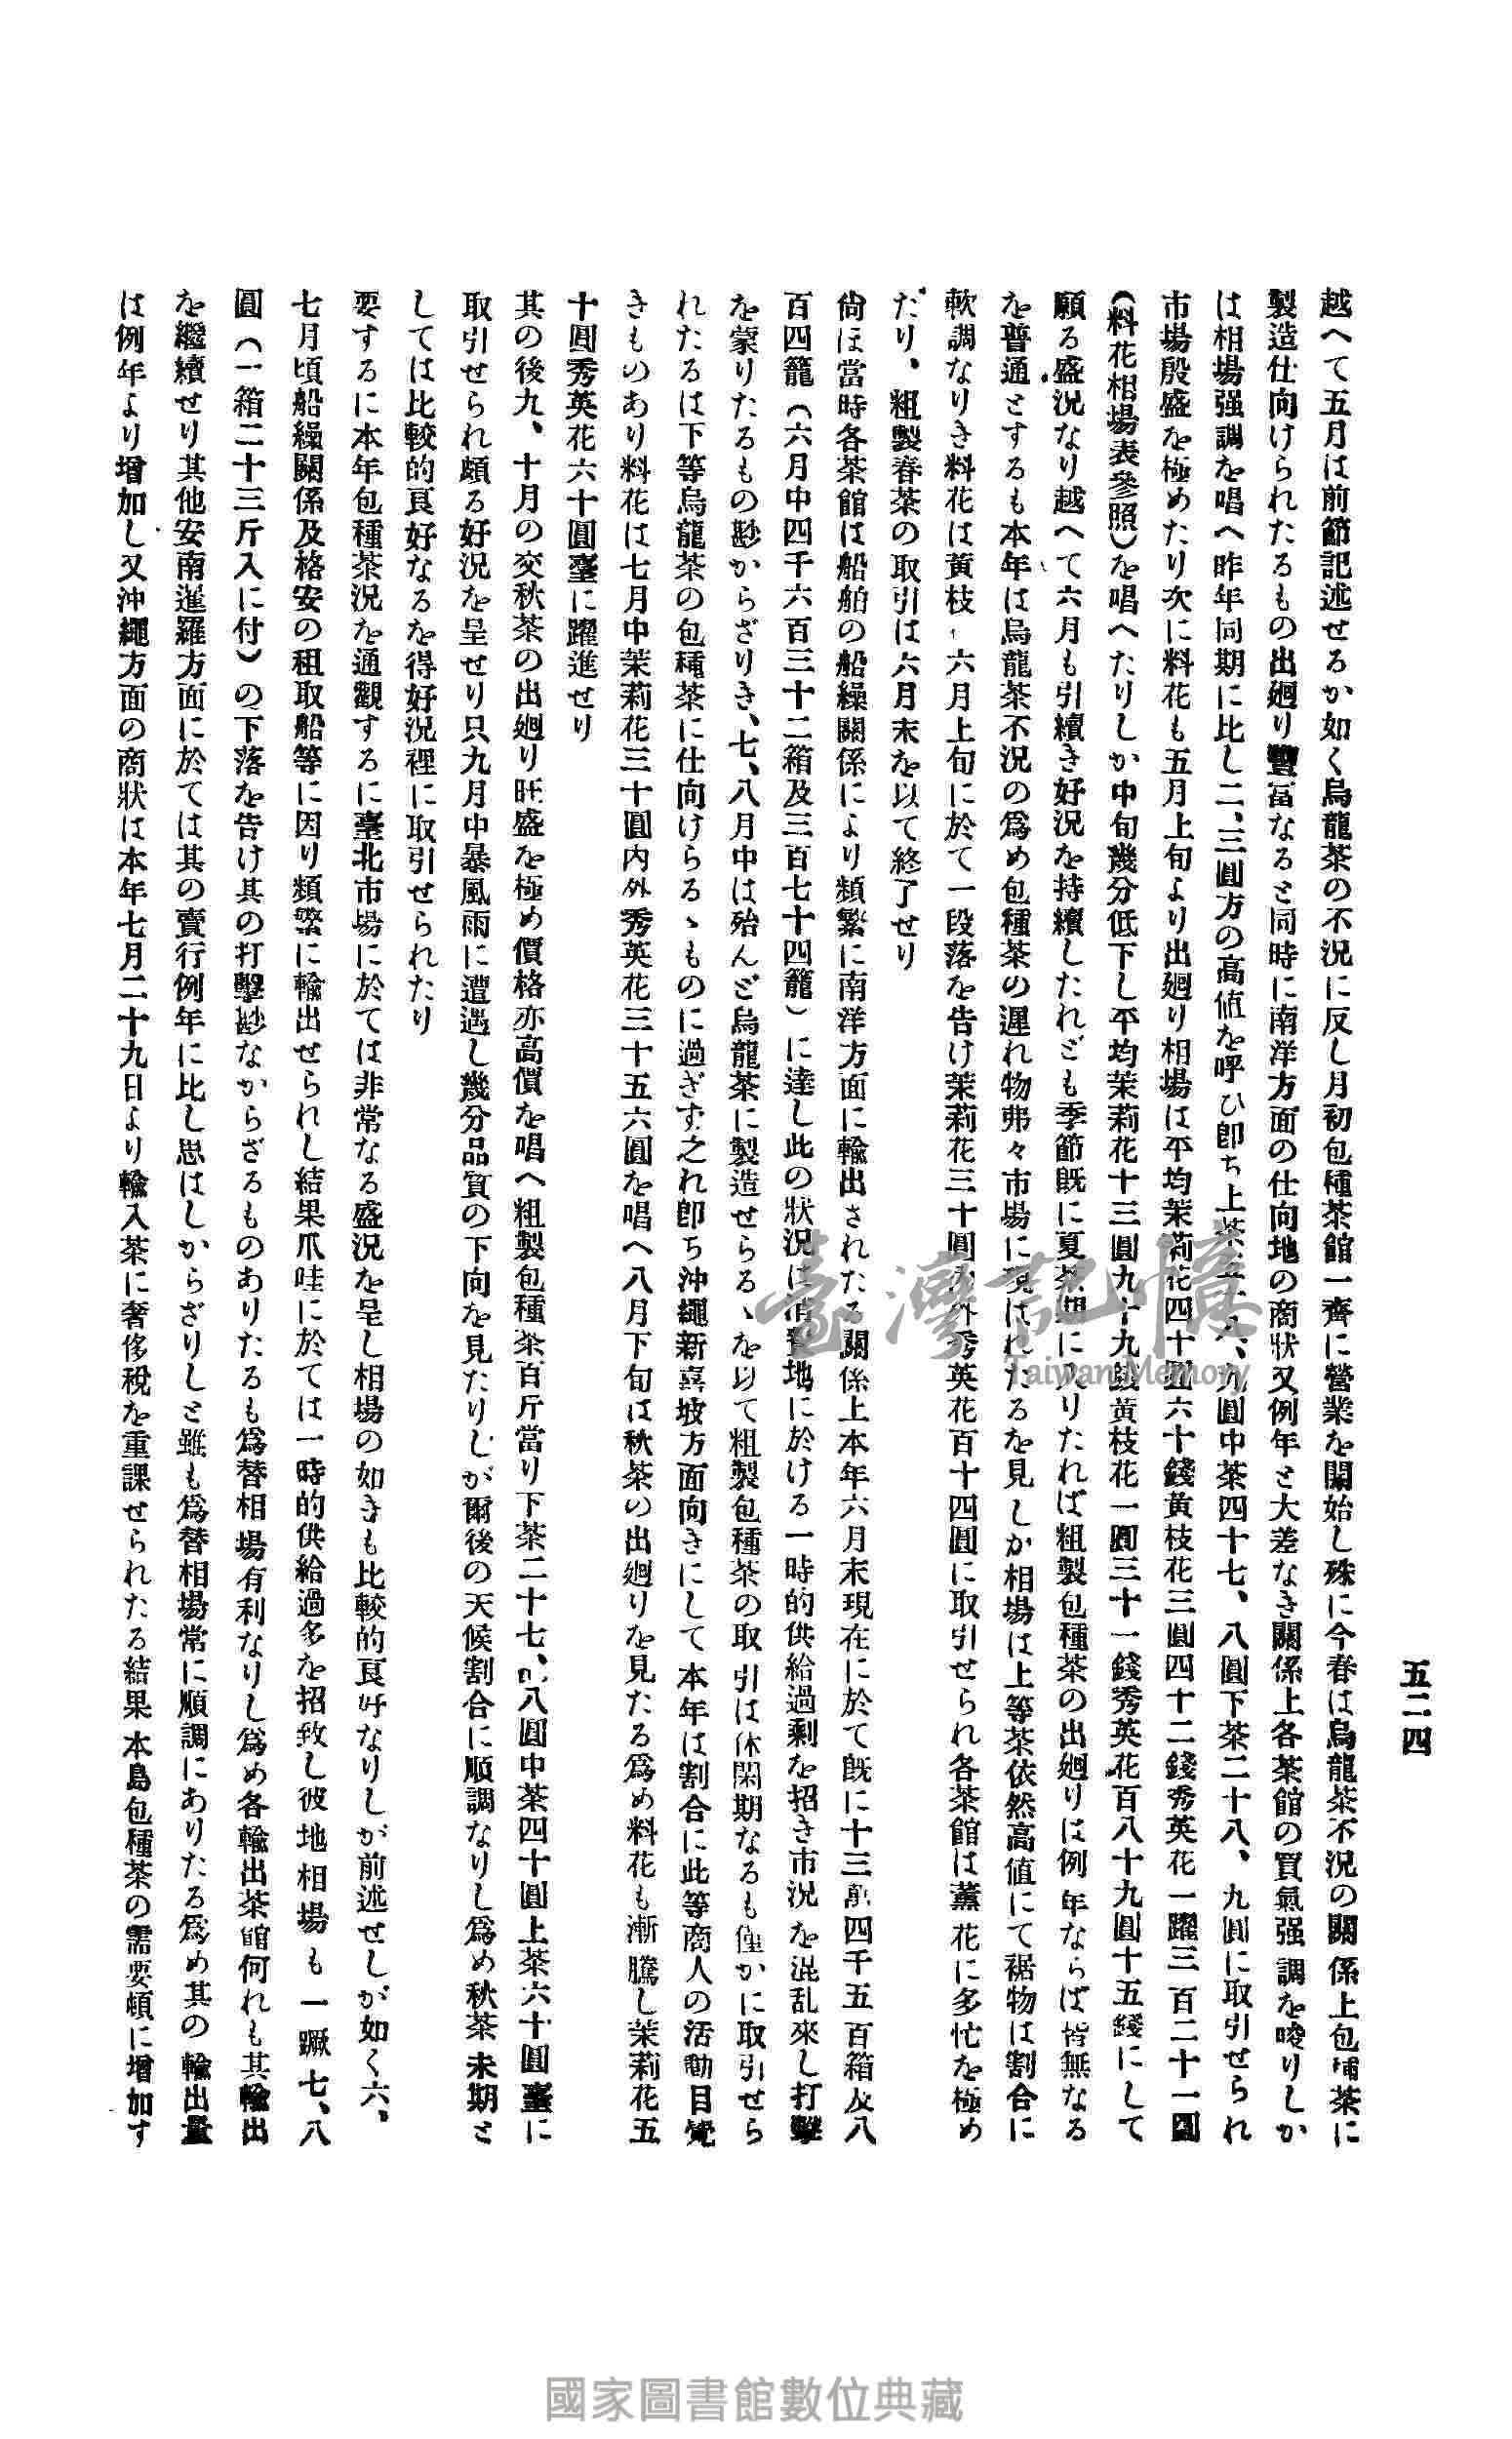 五二四
越へて五月は前節記述せるか如く烏龍茶の不況に反し月初包種茶館一齊に營業を開始し殊に今春は烏龍茶不況の關係上包種茶に
製造仕向けられたるもの出廻り豐富なると同時に南洋方面の仕向地の商狀又例年と大差なき關係上各茶館の買氣强調を唆りしか
は相場强調を唱へ昨年同期に比し二、三圓方の高値を呼ひ卽ち上茶 八、九圓中茶四十七、八圓下茶二十八、九圓に取引せられ
市場殷盛を極めたり次に料花も五月上旬より出廻り相場は平均茉莉花四十圓六十錢黃枝花三圓四十二錢秀英花一躍三百二十一圓
(料花相場表參照)を唱へたりしか中旬幾分低下し平均茉莉花十三圓九十九錢黃枝花一圓三十一錢秀英花百八十九圓十五錢にして
願る盛況なり越へて六月も引續き好況を持續したれども季節既に夏茶期に入りたれば粗製包種茶の出廻りは例年ならば皆無なる
を普通とするも本年は烏龍茶不況の爲め包種茶の遲れ物弗々市場に現はれたるを見しか相場は上等茶依然高値にて裾物は割合に
軟調なりき料花は黃枝、六月上旬に於て一段落を告け茉莉花三十圓內外秀英花百十四圓に取引せられ各茶館は薰花に多忙を極め
たり、粗製春茶の取引は六月末を以て終了せり
尙ほ當時各茶館は船舶の船繰關係により頻繁に南洋方面に輸出されたる關係上本年六月末現在に於て既に十三萬四千五百箱及八
百四籠(六月中四千六百三十二箱及三百七十四籠)に達し此の狀況は消費地に於ける一時的供給過剩を招き市況を混乱來し打擊
を蒙りたるもの尠からざりき、七、八月中は殆んど烏龍茶に製造せらるゝを以て粗製包種茶の取引は休閑期なるも僅かに取引せら
れたるは下等烏龍茶の包種茶に仕向けらるゝものに過ぎず之れ卽ち沖繩新嘉坡方面向きにして本年は割合に此等商人の活動目覺
きものあり料花は七月中茉莉花三十圓內外秀英花三十五六圓を唱へ八月下旬は秋茶の出廻りを見たる爲め料花も漸騰し茉莉花五
十圓秀英花六十圓臺に躍進せり
其の後九、十月の交秋茶の出廻り旺盛を極め價格亦高價を唱へ粗製包種茶百斤當り下茶二十七、八圓中茶四十圓上茶六十圓臺に
取引せられ頗る好況を呈せり只九月中暴風雨に遭遇し幾分品質の下向を見たりしが爾後の天候割合に順調なりし爲め秋茶末期と
しては比較的良好なるを得好況裡に取引せられたり
要するに本年包種茶況を通觀するに臺北市場に於ては非常なる盛況を呈し相場の如きも比較的良好なりしが前述せしが如く六、
七月頃船繰關係及格安の租取船等に因り頻繁に輸出せられし結果爪哇に於ては一時的供給過多を招致し彼地相場も一蹶七、八
圓(一箱二十三斤入に付)の下落を告け其の打擊尠なからざるものありたるも爲替相場有利なりし爲め各輸出茶館何れも其輸出
を繼續せり其他安南暹羅方面に於ては其の賣行例年に比し思はしからざりしと雖も爲替相場常に順調にありたる爲め其の輸出量
は例年より增加し又沖繩方面の商狀は本年七月二十九日より輸入茶に奢侈稅を重課せられたる結果本島包種茶の需要頓に增加す
臺灣記憶
Taiwan Memory
國家圖書館數位典藏